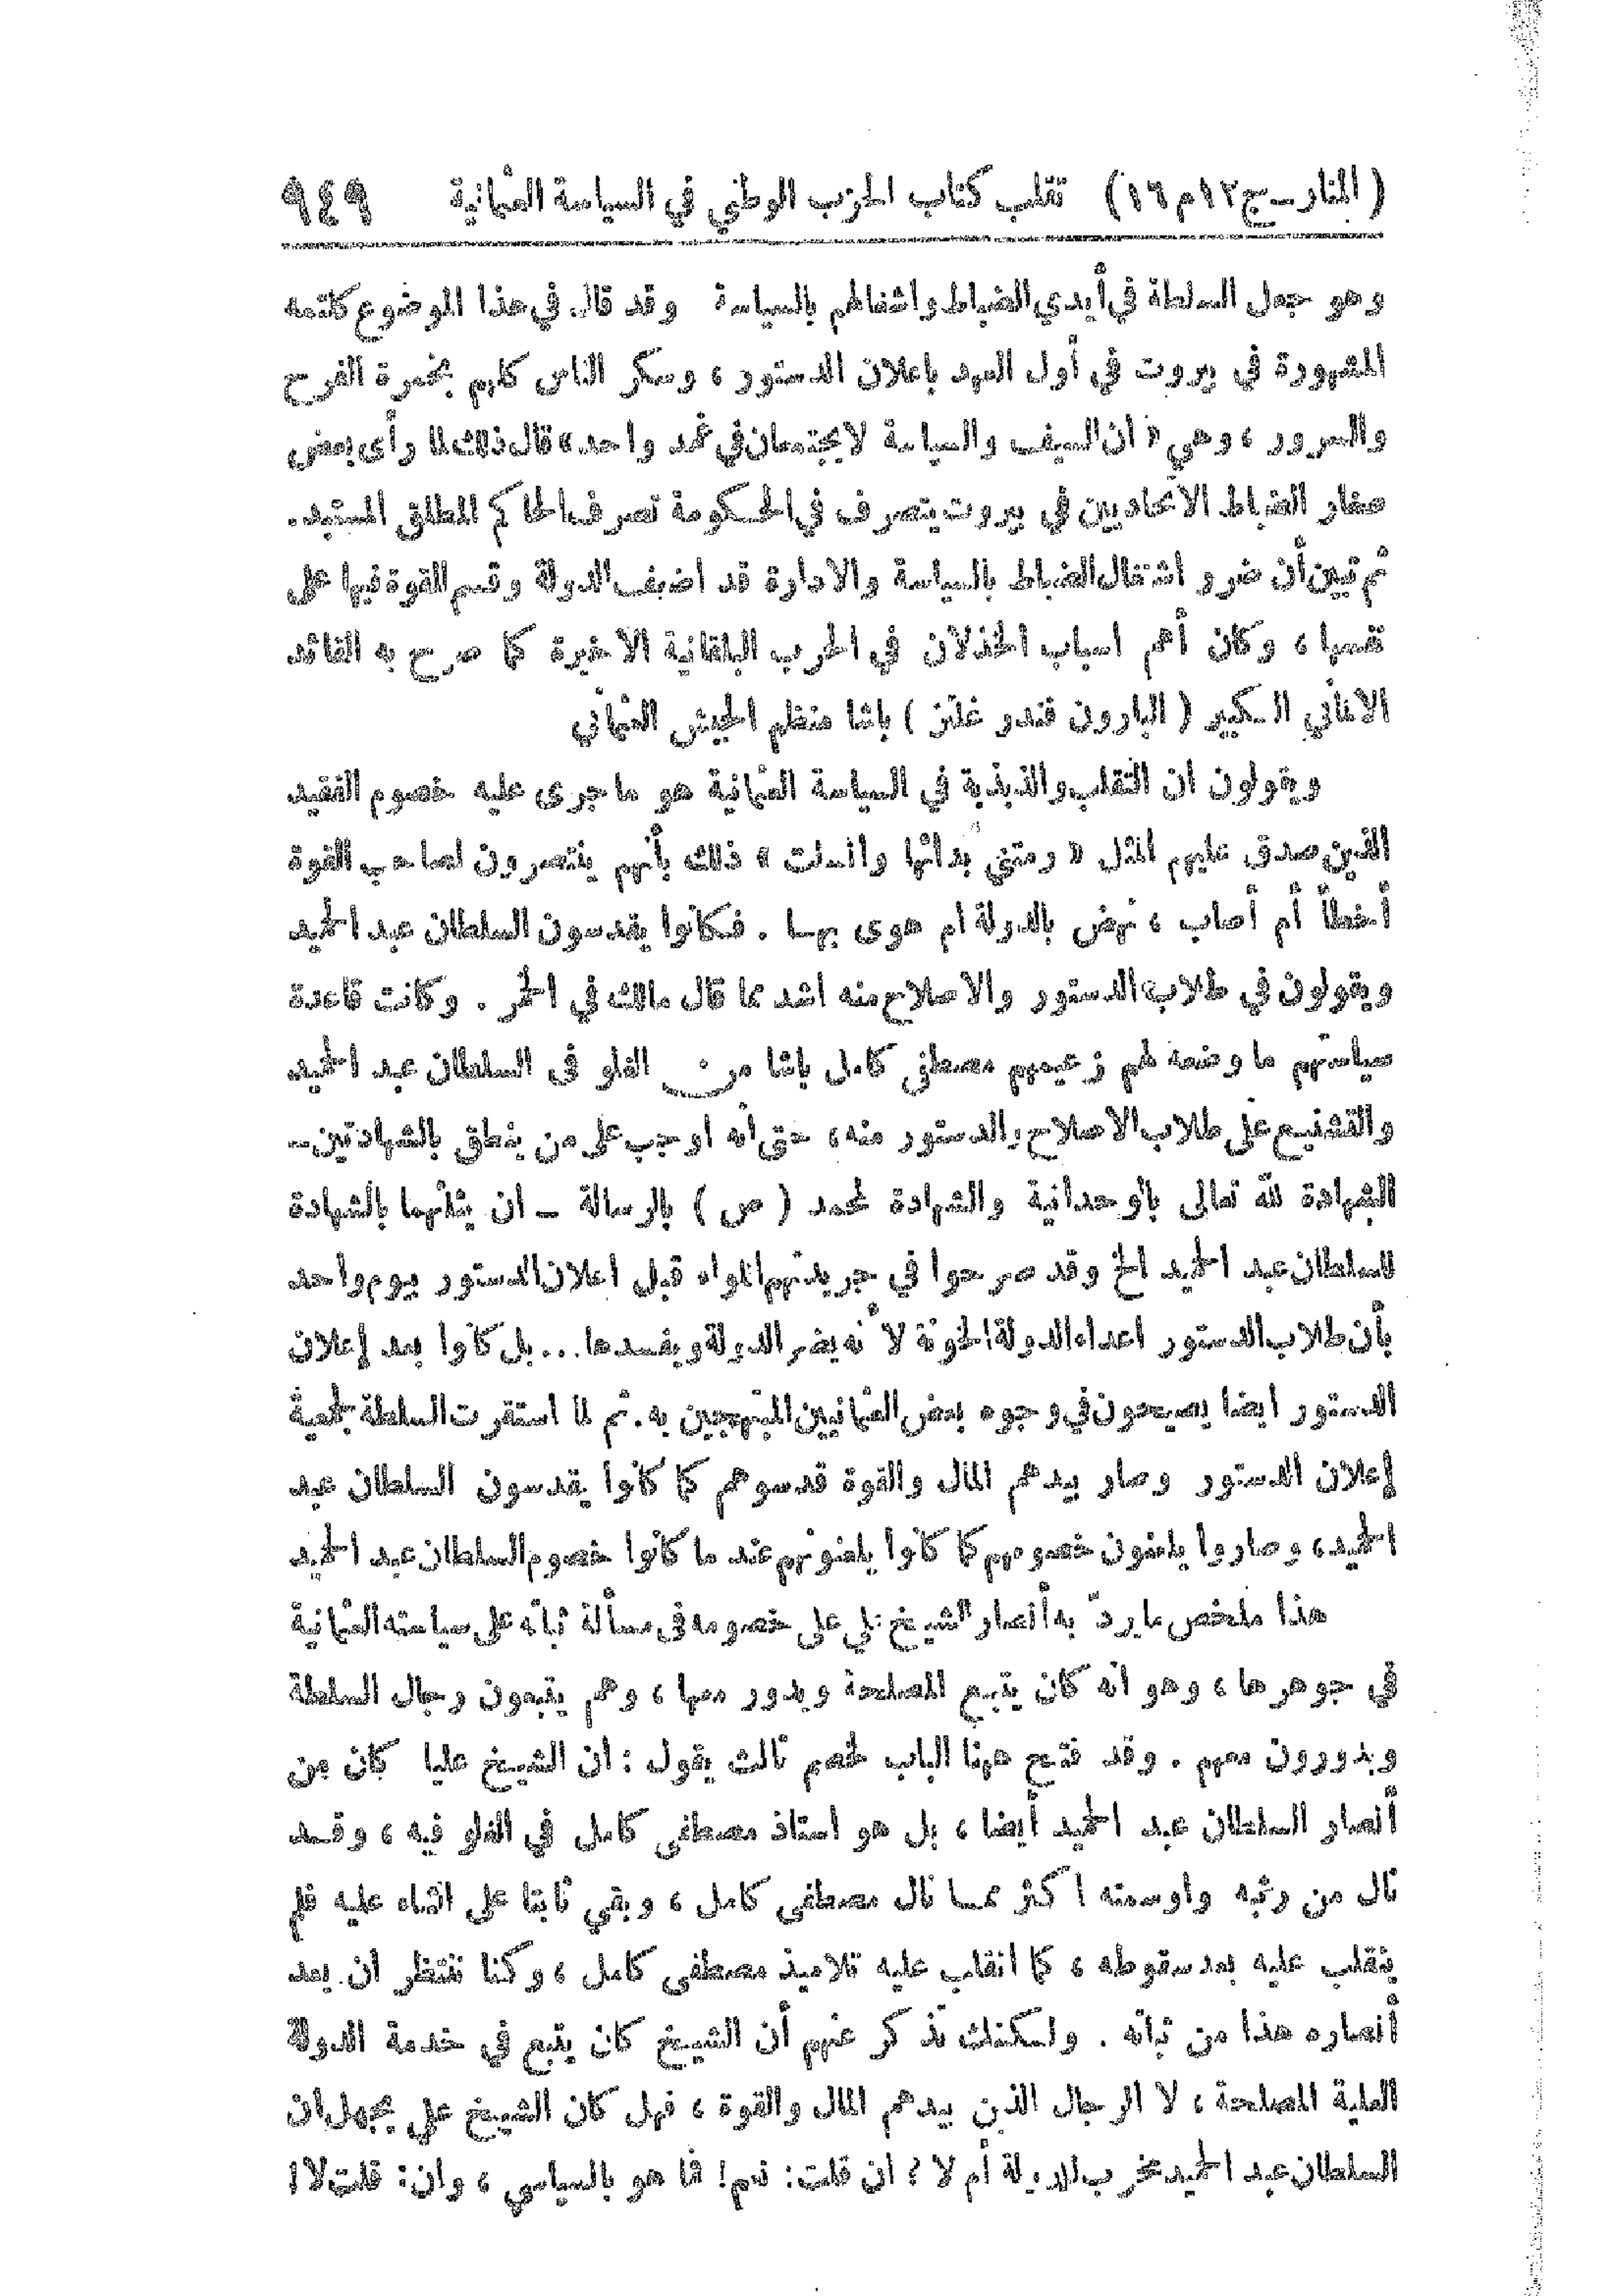 (المنار–ج١٢م١٦) تقلب كتاب الحزب الوطني في السياسة العثمانية ٩٤٩
وهو جعل السلطة في أيدي الضباط واشغالهم بالسياسة وقد قال في هذا الموضوع كلمته
المشهورة في بيروت في أول العهد باعلان الدستور ، وسكر الناس كلهم بخمرة الفرح
والسرور ، وهي « ان السيف والسياسة لا يجتمعان في غمد واحد » قال ذلك لما رأى بعض
صغار الضباط الاتحاديين في بيروت يتصرف في الحكومة تصرف الحاكم المطلق المستبد .
ثم تبين أن ضرر اشتغال الضباط بالسياسة والادارة قد اضعف الدولة وقسم القوة فيها على
نفسها ، وكان أهم اسباب الخذلان في الحرب البلقانية الاخيرة كما صرح به القائد
الالماني الكبير ( البارون فندر غلتز ) باشا منظم الجيش العثماني
ويقولون ان التقلب والذبذبة في السياسة العثمانية هو ما جرى عليه خصوم الفقيد
الذين صدق عليهم المثل « رمتني بدائها وانسلت » ذلك بأنهم ينتصرون لصاحب القوة
أخطأ أم أصاب ، نهض بالدولة ام هوى بها . فكانوا يقدسون السلطان عبد الحميد
ويقولون في طلاب الدستور والاصلاح منه اشد مما قال مالك في الخمر . وكانت قاعدة
سياستهم ما وضعه لهم زعيمهم مصطفى كامل باشا من الغلو في السلطان عبد الحميد
والتشنيع على طلاب الاصلاح والدستور منه ، حتى انه اوجب على من ينطق بالشهادتين –
الشهادة لله تعالى بالوحدانية والشهادة لمحمد ( ص ) بالرسالة – ان يثلثهما بالشهادة
للسلطان عبد الحميد الخ وقد صرحوا في جريدتهم اللواء قبل اعلان الدستور بيوم واحد
بأن طلاب الدستور اعداء الدولة الخونة لأنه يضر الدولة ويفسدها ... بل كانوا بعد إعلان
الدستور ايضا يصيحون في وجوه بعض العثمانيين المبتهجين به . ثم لما استقرت السلطة لجمعية
إعلان الدستور وصار بيدهم المال والقوة قدسوهم كما كانوا يقدسون السلطان عبد
الحميد ، وصاروا يلعنون خصومهم كما كانوا يلعنونهم عند ما كانوا خصوم السلطان عبد الحميد
هذا ملخص ما يردّ به أنصار الشيخ علي على خصومه في مسألة ثباته على سياسته العثمانية
في جوهرها ، وهو انه كان يتبع المصلحة ويدور معها ، وهم يتبعون رجال السلطة
ويدورون معهم . وقد فتح ههنا الباب لخصم ثالث يقول : ان الشيخ عليا كان من
أنصار السلطان عبد الحميد أيضا ، بل هو استاذ مصطفى كامل في الغلو فيه ، وقد
نال من رتبه واوسمته اكثر مما نال مصطفى كامل ، وبقي ثابتا على الثناء عليه فلم
ينقلب عليه بعد سقوطه ، كما انقلب عليه تلاميذ مصطفى كامل ، وكنا ننتظر ان يعد
أنصاره هذا من ثباته . ولكنك تذكر عنهم أن الشيخ كان يتبع في خدمة الدولة
العلية المصلحة ، لا الرجال الذين بيدهم المال والقوة ، فهل كان الشيخ علي يجهل ان
السلطان عبد الحميد مخرب للدولة أم لا ؟ ان قلت : نعم ! فما هو بالسياسي ، وان : قلت لا !